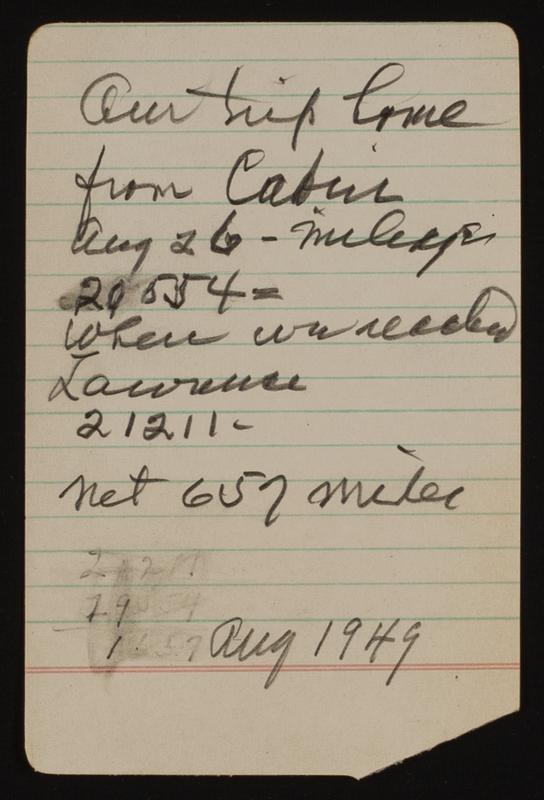 Our trip home
from Cabin
Aug 26 - mileage
20554 =
When we reached
Lawrence
21211 -
Net 657 miles
21211
19554
1657
Aug 1949